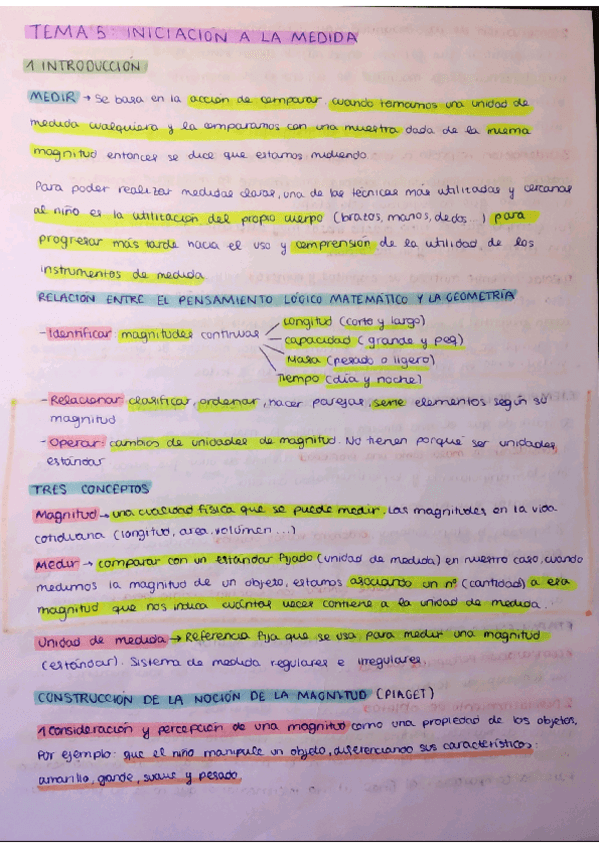 TEMA 5: INICIACIÓN A LA MEDIDA
1 INTRODUCCIÓN
MEDIR → Se basa en la acción de comparar. cuando tomamos una unidad de
medida cualquiera y la comparamos con una muestra dada de la misma
magnitud entonces se dice que estamos midiendo
Para poder realizar medidas claras, una de las técnicas más utilizadas y cercanas
al niño es la utilización del propio cuerpo (brazos, manos, dedos...) para
progresar más tarde hacia el uso y comprensión de la utilidad de los
instrumentos de medida
RELACIÓN ENTRE EL PENSAMIENTO LÓGICO MATEMÁTICO Y LA GEOMETRÍA
- Identificar magnitudes continuas
Longitud (corto y largo)
capacidad (grande y peq)
Masa (pesado o ligero)
Tiempo (día y noche)
- Relacionar clasificar, ordenar, hacer parejas, serie elementos según su
magnitud
- Operar: cambios de unidades de magnitud. No tienen porque ser unidades
estándar
TRES CONCEPTOS
Magnitud → una cualidad física que se puede medir. Las magnitudes en la vida
cotidiana (longitud, area, volúmen...)
Medir → comparar con un estándar fijado (unidad de medida) en nuestro caso, cuando
medimos la magnitud de un objeto, estamos asociando un nº (cantidad) a esa
magnitud que nos indica cuántas veces contiene a la unidad de medida.
Unidad de medida → Referencia fija que se usa para medir una magnitud
(estándar). Sistema de medida regulares e irregulares.
CONSTRUCCIÓN DE LA NOCIÓN DE LA MAGNITUD (PIAGET)
1 Consideración y percepción de una magnitud como una propiedad de los objetos.
Por ejemplo: que el niño manipule un objeto, diferenciando sus características:
amarillo, grande, suave y pesado